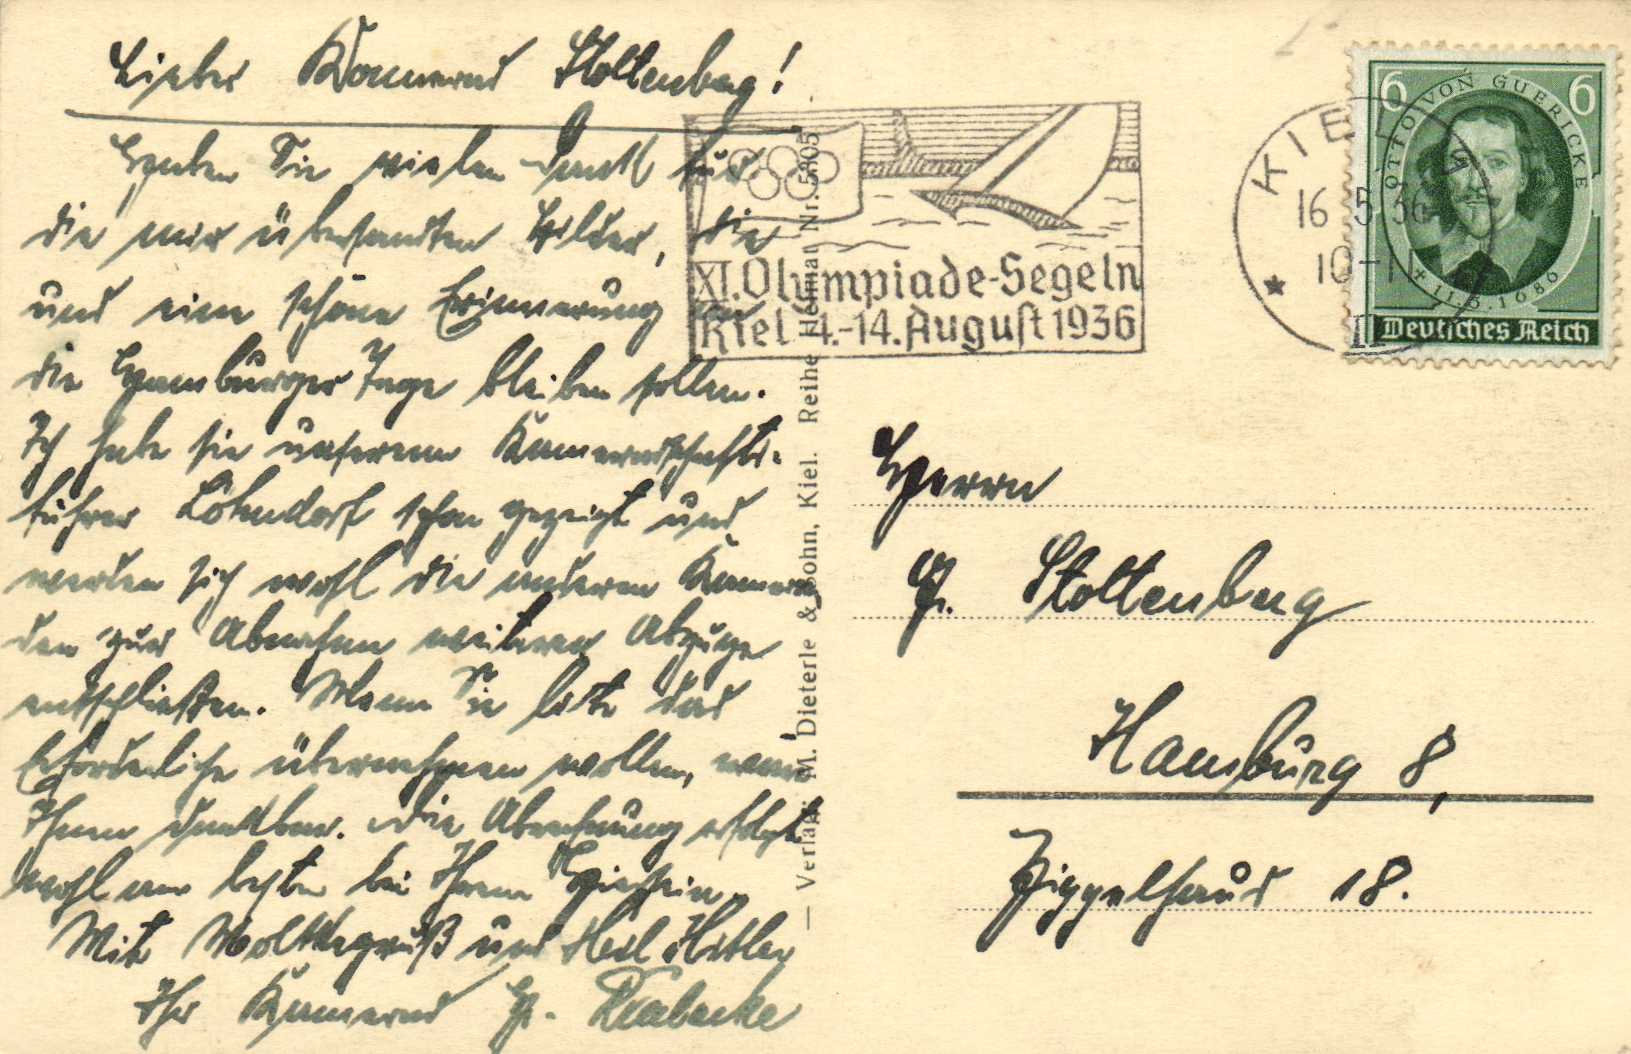 Lieber Kamerad Stoltenberg!
Haben Sie vielen Dank für
die mir übersandten Bilder, die
und eine schöne Erinnerung an
die Hamburger Tage bleiben sollen.
Ich habe sie unserem Kameradschafts-
führer schon gezeigt und
werden sich wohl die anderen Kamera-
den zur Abnahme weiterer Abzüge
entschließen. Wenn Sie bitte das
Erforderliche übernehmen wollen, wäre
Ihnen dankbar. Die Abrechnung erfolgt
wohl am besten bei Ihrem Hiersein.
Mit Moltkegruß und Heil Hitler
Ihr Kamerad H.
XI. Olympiade-Segeln
Kiel 4.-14. August 1936
KIEL
16 5 36
10-11
6 6
OTTO VON GUERICKE
* 11.5.1686
Deutsches Reich
— Verlag: M. Dieterle & Sohn, Kiel. Reihe Heimat Nr. 5805
Herrn
H. Stoltenberg
Hamburg 8,
Pickelhaus 18.